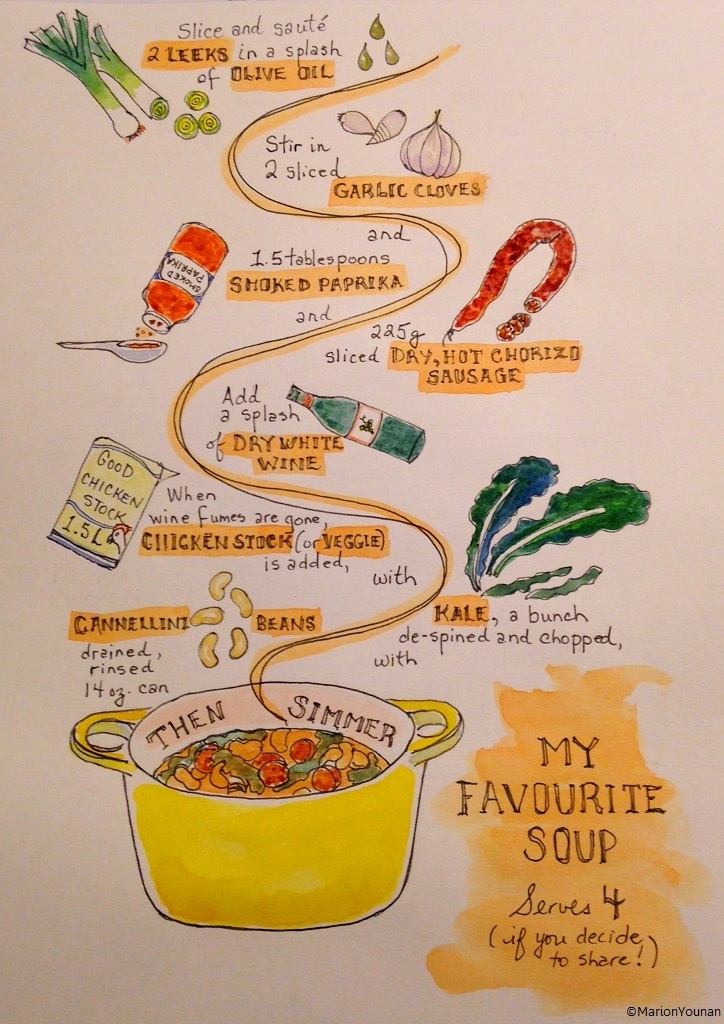 Slice and sauté
2 LEEKS in a splash
of OLIVE OIL
Stir in
2 sliced
GARLIC CLOVES
and
1.5 tablespoons
SMOKED PAPRIKA
SMOKED
PAPRIKA
and
225g
sliced DRY, HOT CHORIZO
SAUSAGE
Add
a splash
of DRY WHITE
WINE
GOOD
CHICKEN
STOCK
1.5L
When
wine fumes are gone,
CHICKEN STOCK (or VEGGIE)
is added,
with
KALE, a bunch
de-spined and chopped,
with
CANNELLINI BEANS
drained,
rinsed
14 oz. can
THEN SIMMER
MY
FAVOURITE
SOUP
Serves 4
(if you decide
to share!)
©MarionYounan